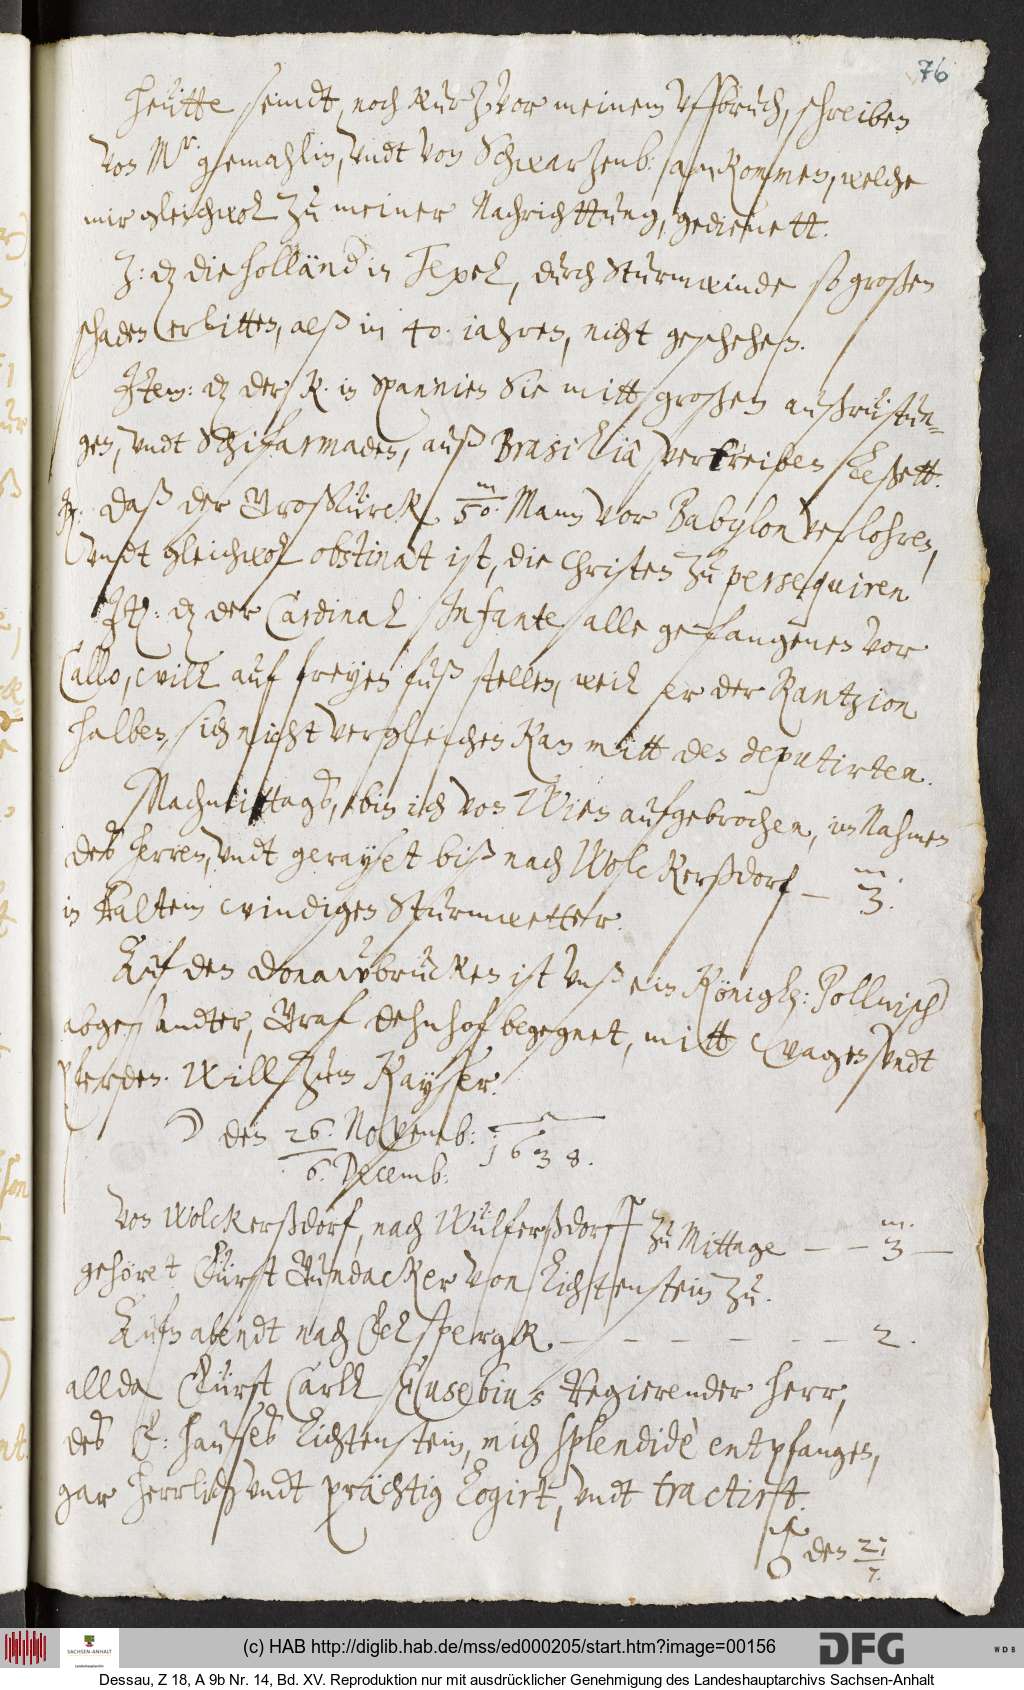 76
Heütte seindt, noch kurtz vor meinem vffbruch, schreiben
von Mr. gemahlin, vndt von Schwartzenb: ankommen, welche
mir gleichwol zu meiner Nachrichttung, gedienett.
J: dz die Holländ. in Texel, durch Sturmwinde so großen
schaden erlitten, alß in 40. iahren, nicht geschehen.
Jtem: dz der K. in Spannien Sie mitt großen außrüstun=
gen, vndt Schifarmaden, auß Brasilia vertreiben leßett.
Jt: daß der GroßTürck m/50. Mann vor Babylon verlohren,
vndt gleichwol obstinat ist, die Christen zu persequiren
Jt: dz der Cardinal Infante alle gefangenen vor
Callo, will auf freyen fuß stellen, weil er der Rantzion
halben, sich nicht vergleichen kan mitt den deputirten.
Nachmittags, bin ich von Wien aufgebrochen, in Nahmen
deß Herren, vndt gerayset biß nach Wolckerßdorf – m/3.
in kaltem windigen Sturmwetter.
Auf den Donawbrücken ist vnß ein Königl: Pollnisch
abgesandter, Graf Dehnhof begegnet, mitt wagen vndt
pferden. Will zum Kayser.
☽ den 26. Novemb: 1638.
6. Decemb:
Von Wolckerßdorf, nach Wülferßdorff zu Mittage – – m/3 –
gehöret Fürst Gundacker von Lichtenstein zu.
Aufn abendt nach Felspergk – – – – – – 2.
allda Fürst Carll Eusebius Regierender Herr,
deß F: hauses Lichtenstein, mich splendidè entpfangen,
gar herrlich vndt prächtig logirt, vndt tractirt.
♂ den 27/7.
(c) HAB http://diglib.hab.de/mss/ed000205/start.htm?image=00156
SACHSEN-ANHALT
DFG
WDB
Dessau, Z 18, A 9b Nr. 14, Bd. XV. Reproduktion nur mit ausdrücklicher Genehmigung des Landeshauptarchivs Sachsen-Anhalt